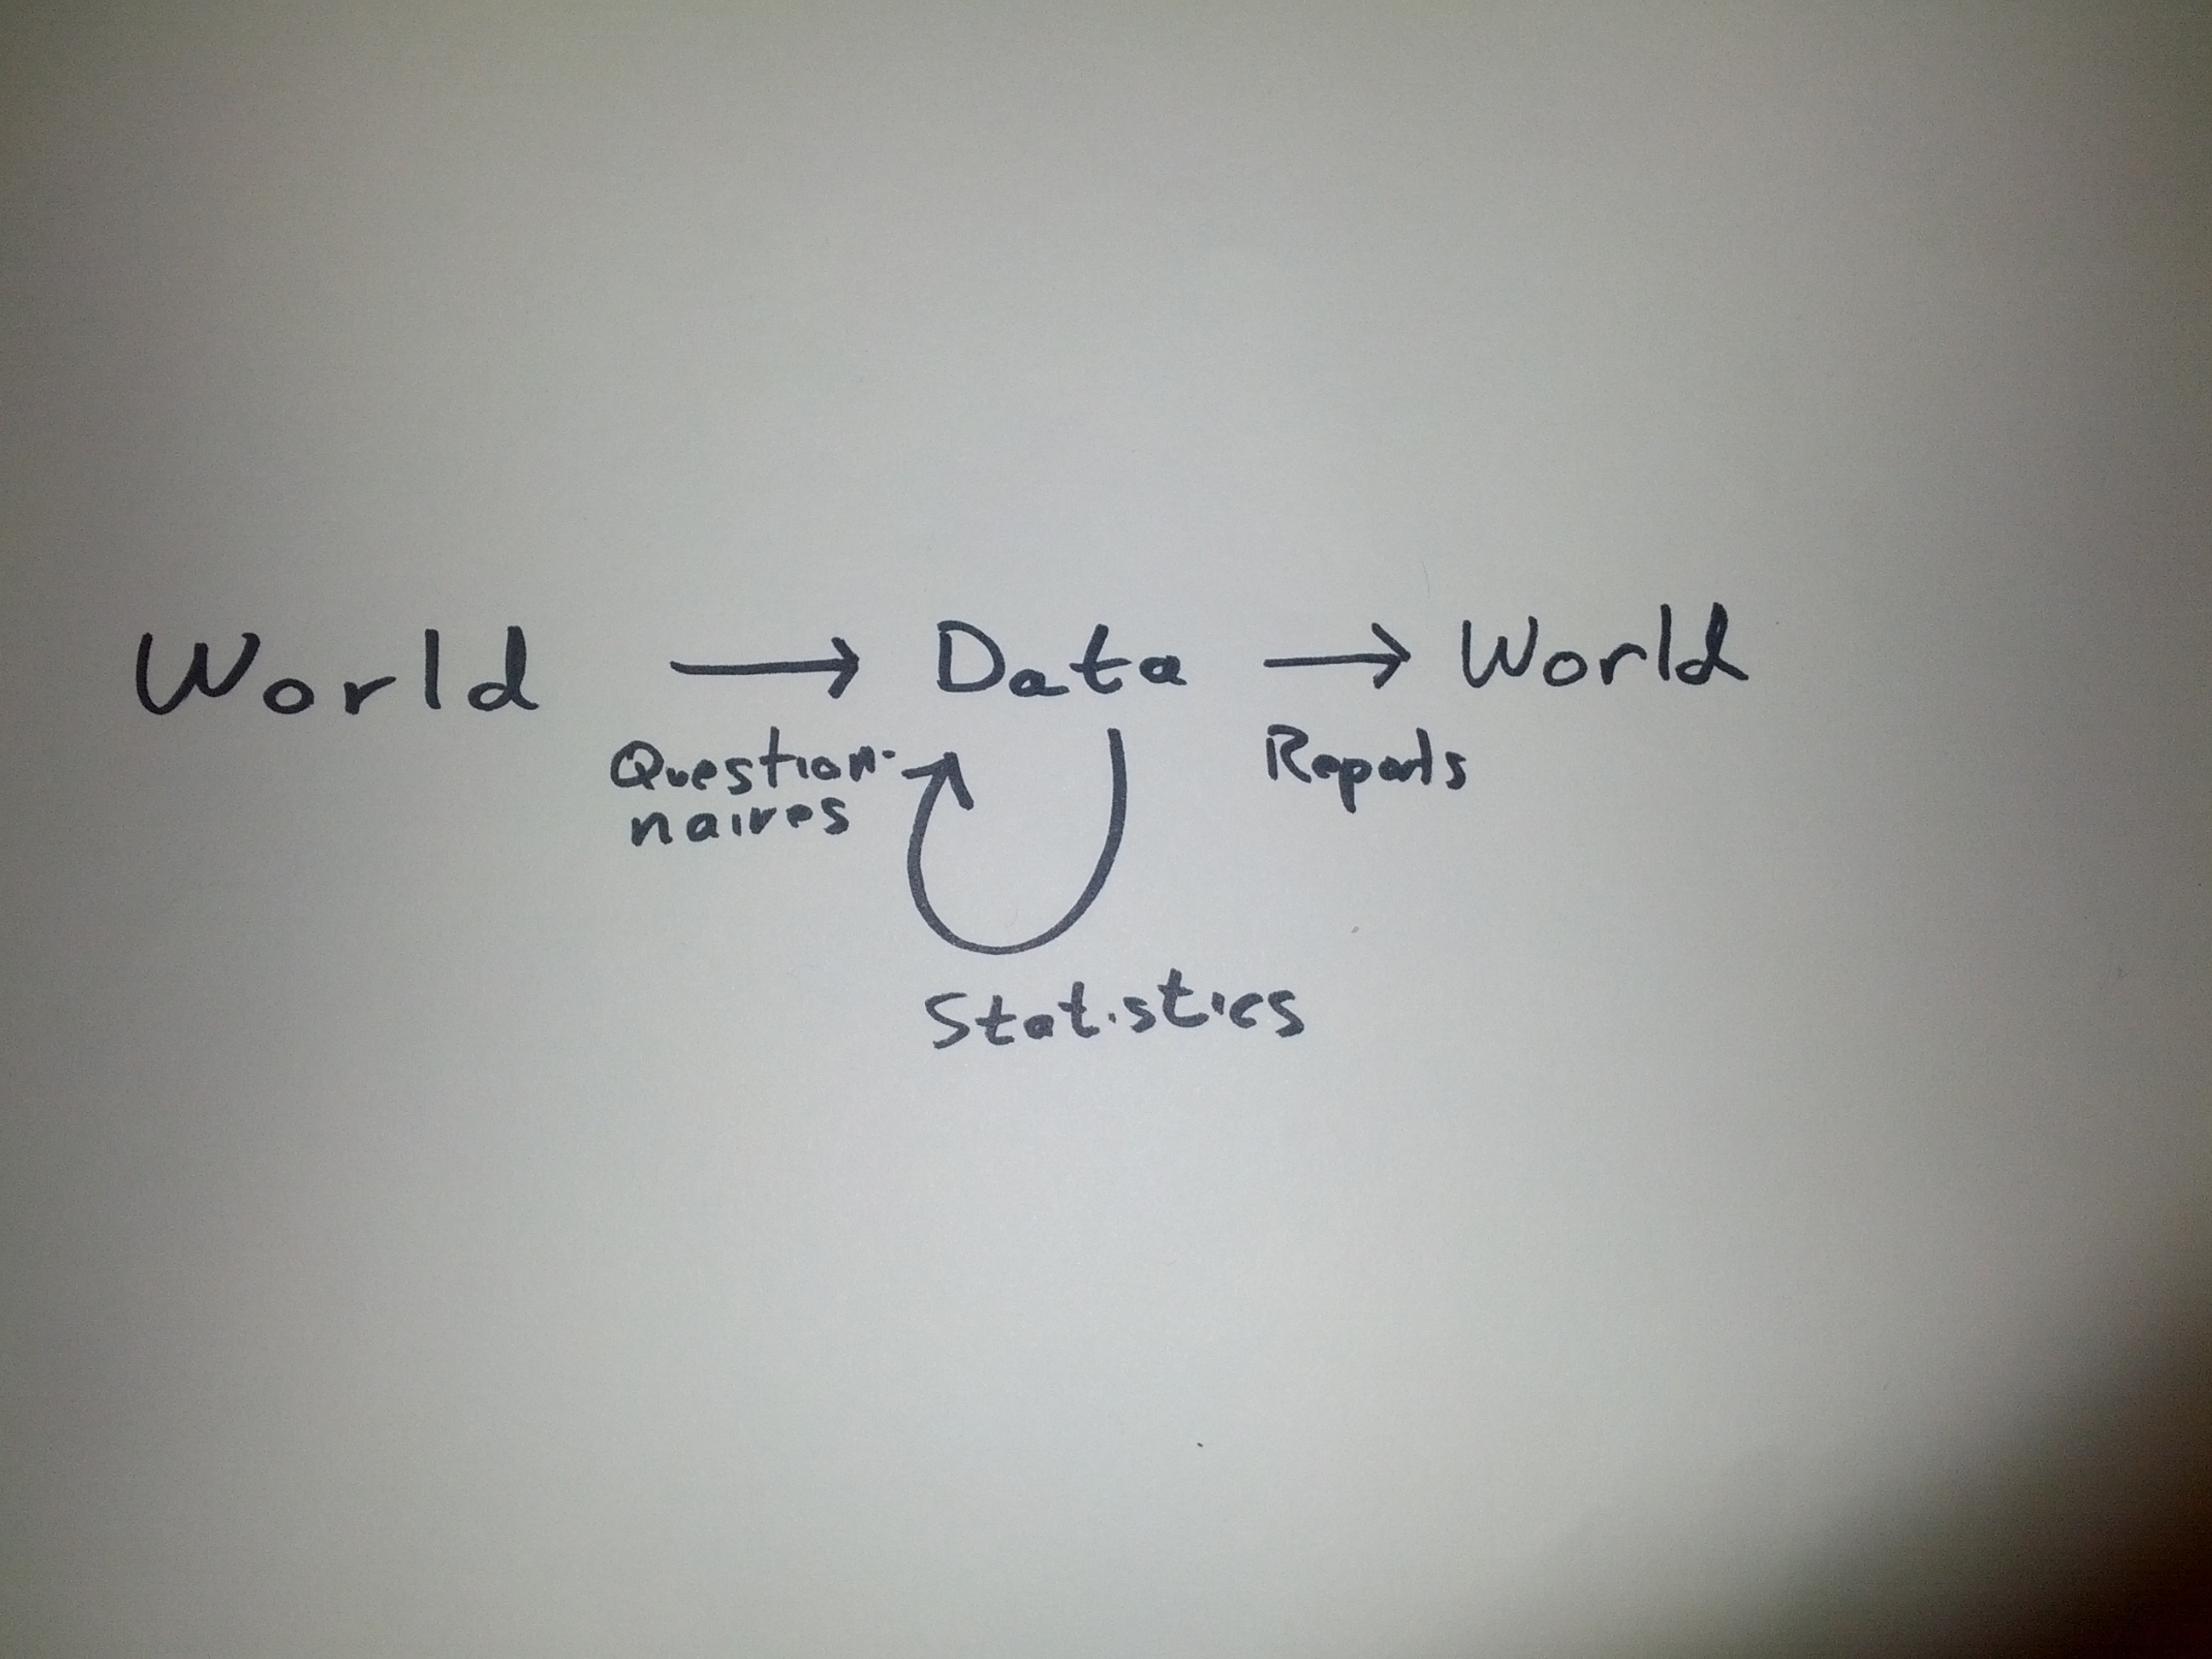 World → Data → World
Question-
naires
Reports
Statistics